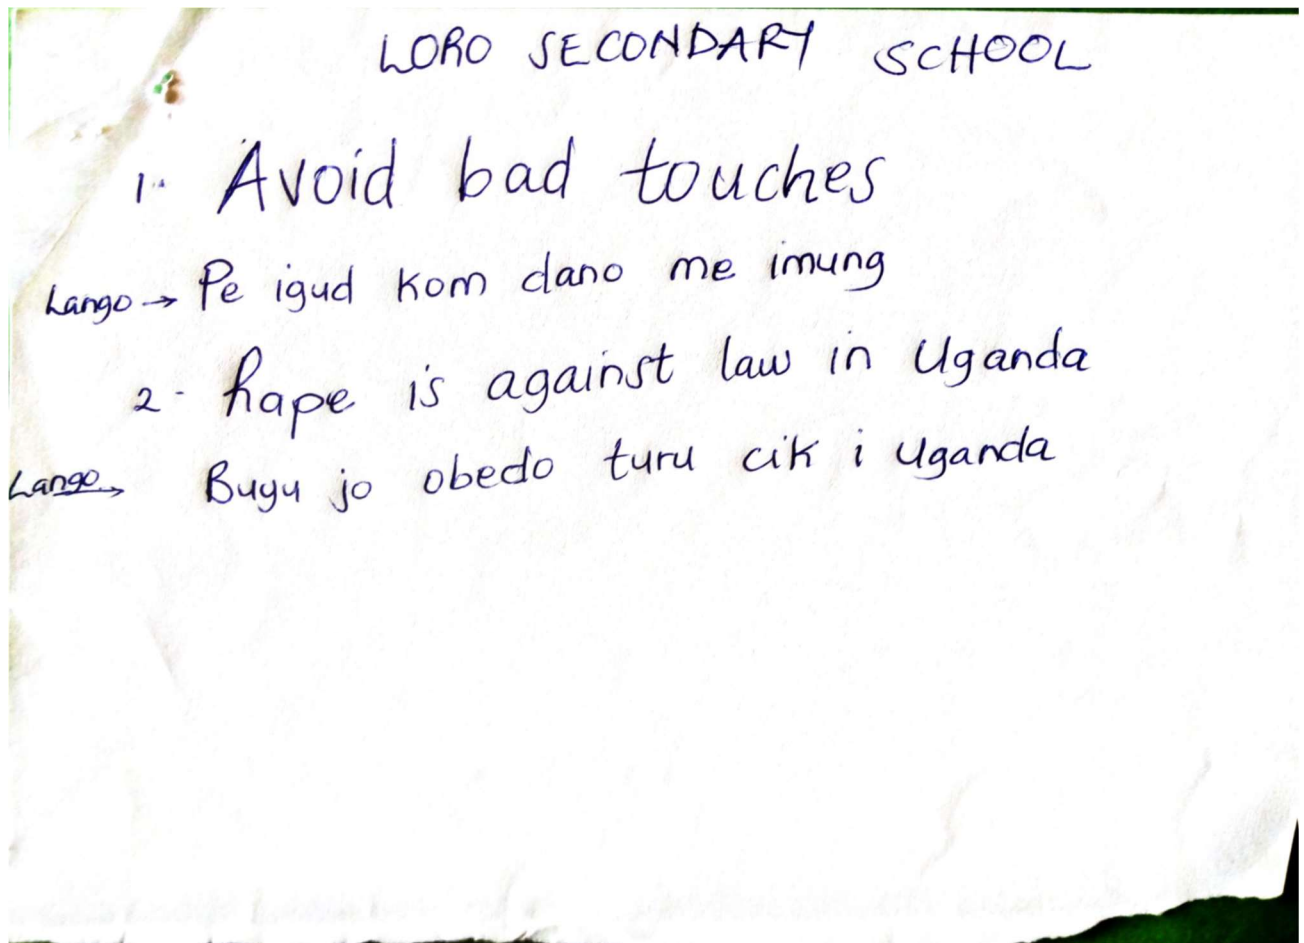 LORO SECONDARY SCHOOL
1. Avoid bad touches
Lango → Pe igud kom dano me imung
2. Rape is against law in Uganda
Lango → Buyu jo obedo turu cik i Uganda